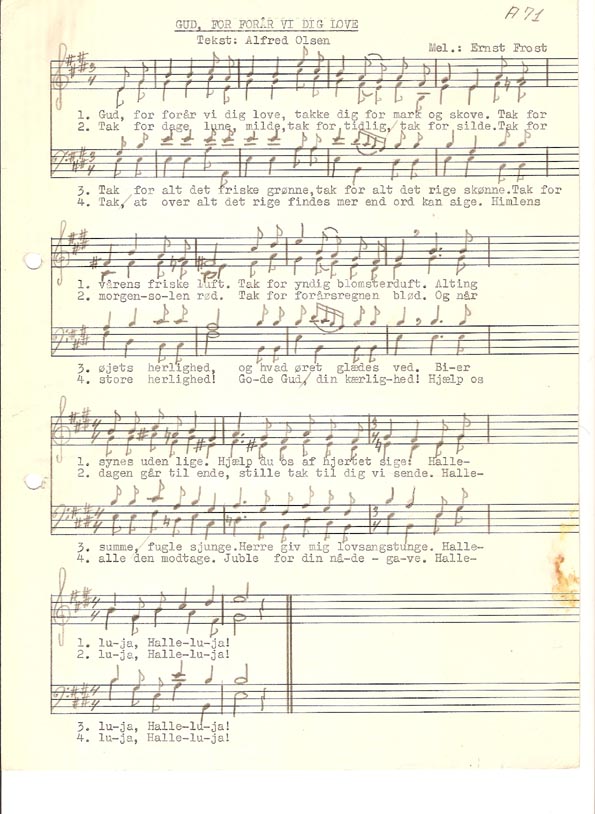 A 71
GUD, FOR FORÅR VI DIG LOVE
Tekst: Alfred Olsen
Mel.: Ernst Frost
1. Gud, for forår vi dig love, takke dig for mark og skove. Tak for
2. Tak for dage lune, milde, tak for tidlig, tak for silde. Tak for
3. Tak for alt det friske grønne, tak for alt det rige skønne. Tak for
4. Tak, at over alt det rige findes mer end ord kan sige. Himlens
1. vårens friske luft. Tak for yndig blomsterduft. Alting
2. morgen-so-len rød. Tak for forårsregnen blød. Og når
3. øjets herlighed, og hvad øret glædes ved. Bi-er
4. store herlighed! Go-de Gud, din kærlig-hed! Hjælp os
1. synes uden lige. Hjælp du os af hjertet sige: Halle-
2. dagen går til ende, stille tak til dig vi sende. Halle-
3. summe, fugle sjunge. Herre giv mig lovsangstunge. Halle-
4. alle den modtage. Juble for din nå-de - ga-ve. Halle-
1. lu-ja, Halle-lu-ja!
2. lu-ja, Halle-lu-ja!
3. lu-ja, Halle-lu-ja!
4. lu-ja, Halle-lu-ja!